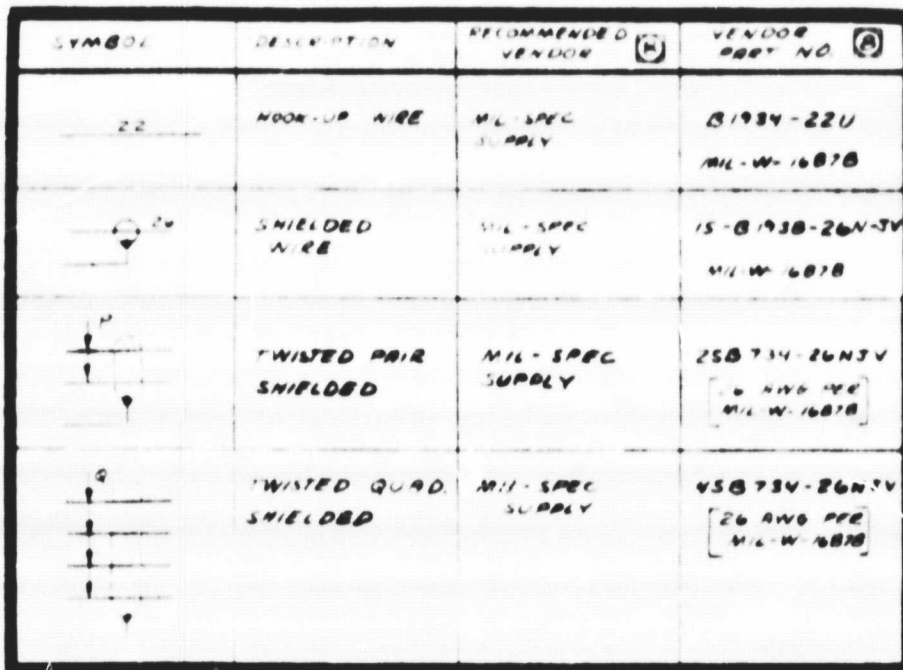 SYMBOL DESCRIPTION RECOMMENDED VENDOR VENDOR PART NO.
22 HOOK-UP WIRE MIL-SPEC SUPPLY B1934-22U
MIL-W-16878
26 SHIELDED WIRE MIL-SPEC SUPPLY
MIL-W-16878
P TWISTED PAIR SHIELDED MIL-SPEC SUPPLY 25B734-26N3V
26 AWG PER
MIL-W-16878
Q TWISTED QUAD. SHIELDED MIL-SPEC SUPPLY
26 AWG PER
MIL-W-16878